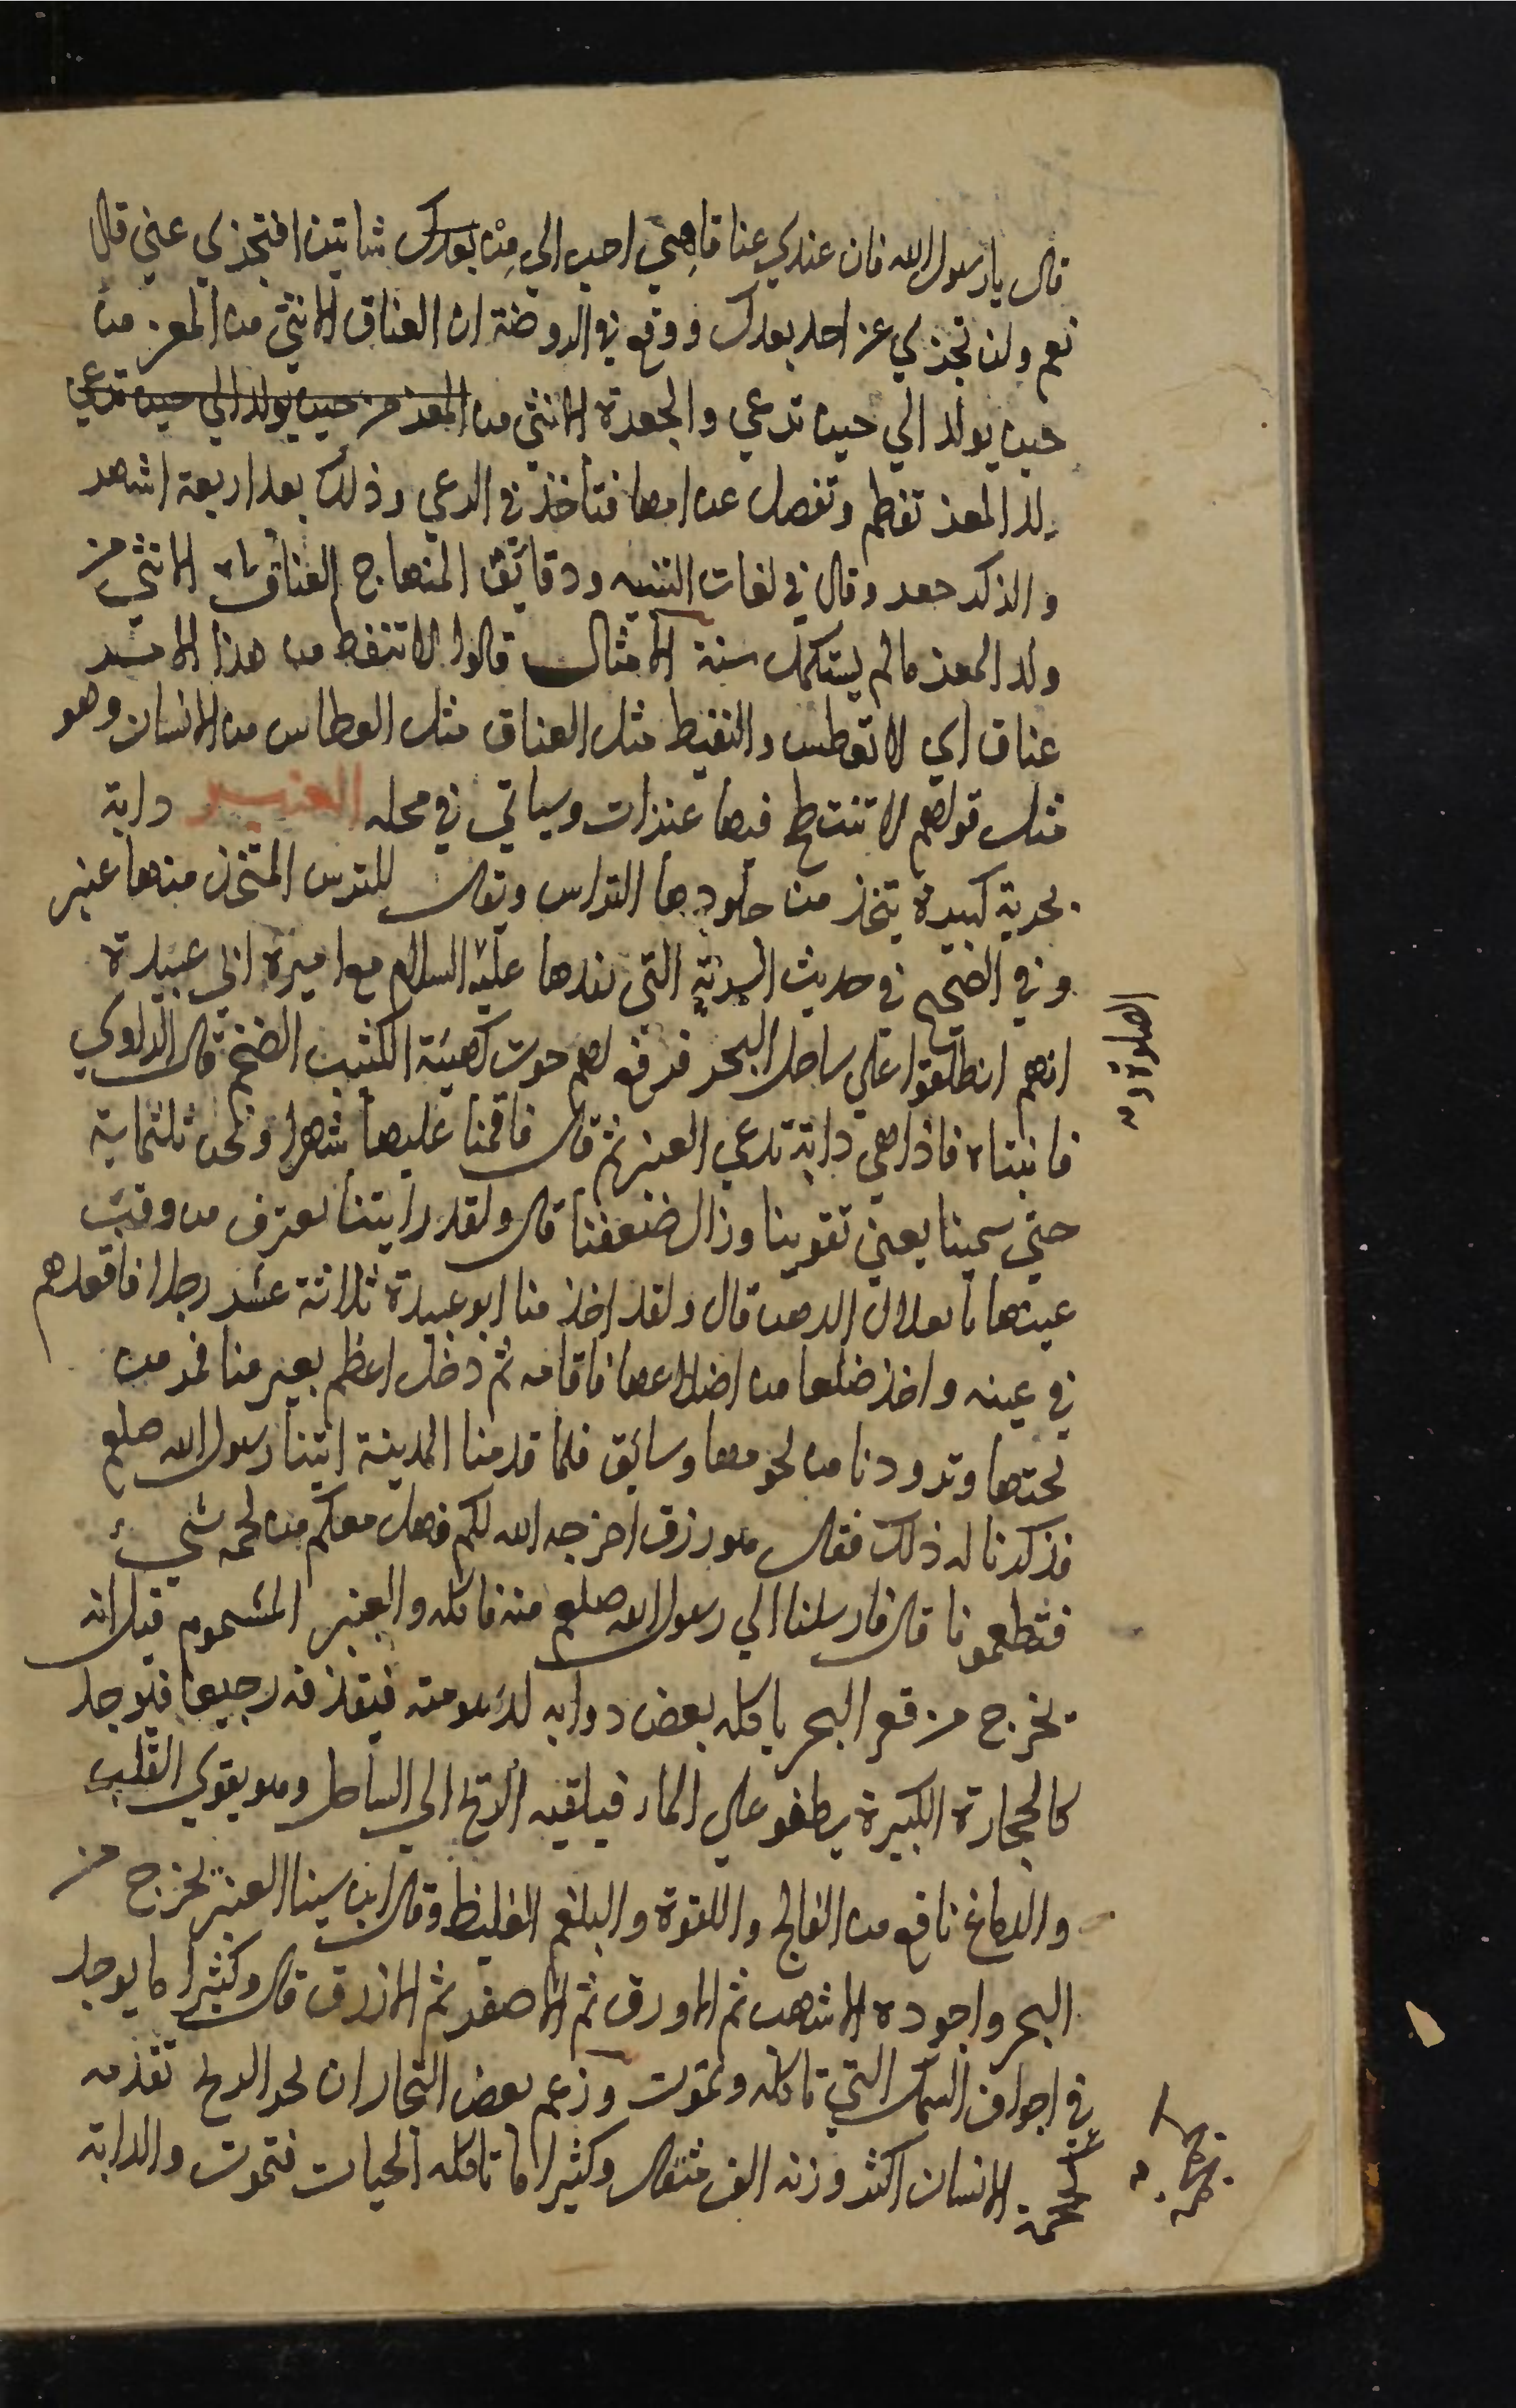 قال يا رسول الله فان عندي عناقا هي احب الي من بعدك شاتين افتجزي عني قال
نعم ولن تجزي عن احد بعدك ووقع في الروضة ان العناق الانثي من المعز من
حين يولد الي حين ترعي والجعرة الانثي من المعز من حين يولد الي حين ترعي
ولد المعز تفطم وتفصل عن امها فتاخذ في الرعي وذلك بعد اربعة اشهر
والذكر جفر وقال في لغات التنبيه ودقائق المنهاج العناق الانثي من
ولد المعز مالم يستكمل سنة الامثال قالوا لا تنفط من هذا الامر
عناق اي لا تعطس والنفيط مثل العناق مثل العطاس من الانسان وهو
مثل قولهم لا تنتطح فيها عنزان وسياتي في محله العنبر دابة
بحرية كبيرة يتخذ من جلودها التراس ويقال للترس المتخذ منها عنبر
وفي الصحيح في حديث السرية التي عليه السلام مع اميره ابي عبيدة
انهم انطلقوا علي ساحل البحر فرفع لهم حوت كهيئة الكثيب الضخم قال الراوي
فاتيناه فاذا هي دابة تدعي العنبر ثم قال فاقمنا عليها شهرا ونحن ثلثماية
حتي سمينا يعني تقوينا وزال ضعفنا قال ولقد رايتنا نعترف من وقب
عينها بالقلال الدهن قال ولقد اخذ منا ابو عبيدة ثلاثة عشر رجلا فاقعدهم
في عينه واخذ ضلعا من اضلاعها فاقامه ثم دخل اعظم بعير منا فمر من
تحتها وتزودنا من لحومها وسائق فلما قدمنا المدينة اتينا رسول الله صلعم
فذكرنا له ذلك فقال هو رزق اخرجه الله لكم فهل معكم من لحمه شيء
فتطعمونا قال فارسلنا الي رسول الله صلعم منه فاكله والعنبر المشموم قيل انه
يخرج من قعر البحر ياكله بعض دوابه لدسومته فيقذفه رجيعا فيوجد
كالحجارة الكبيرة يطفو علي الماء فيلقيه الريح الي الساحل وهو يقوي القلب
والدماغ نافع من الفالج واللقوة والبلغم الغليظ وقال ابن سينا العنبر يخرج من
البحر واجوده الاشهب ثم الاورق ثم الاصفر ثم الازرق قال وكثيرا ما يوجد
في اجواف السمك التي تاكله وتموت وزعم بعض التجار ان بحر الزنج تقذفه
الانسان اكثر وزنه الف مثقال وكثيرا ما تاكله الحيات فتموت والدابة